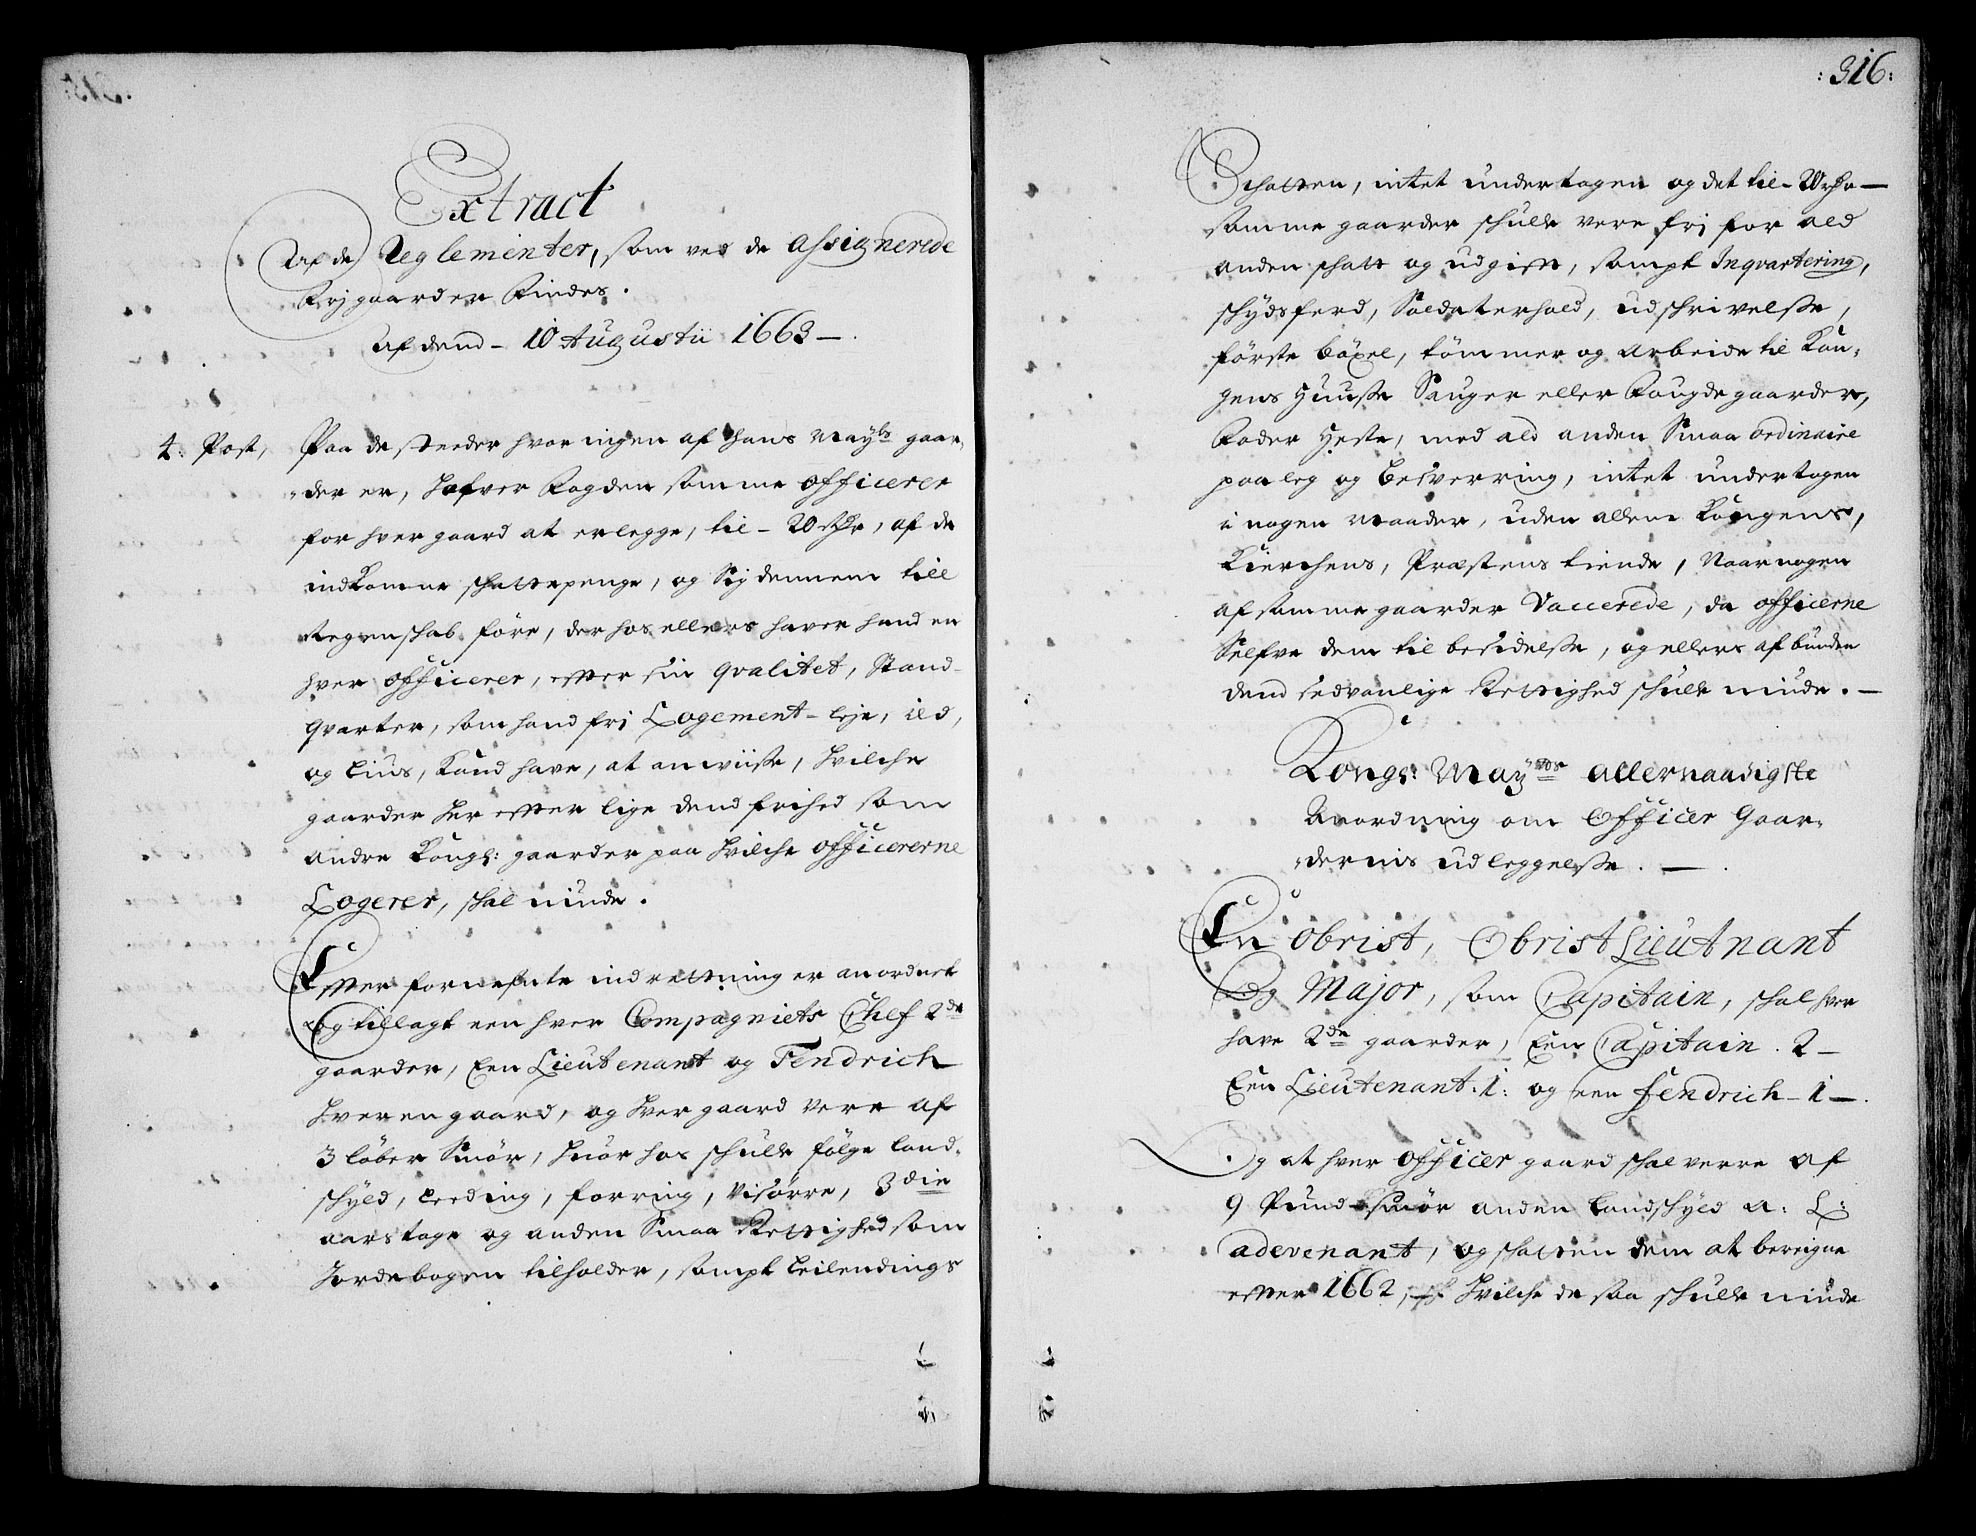 Extract
Af de Reglementer, som ved de assignerede
Frj gaarder findes.
Af dend 10 Augustii 1663
4. Post, Paa de steeder hvor ingen af Hans Mayts gaar-
der er, hafver fogden somme officerer
for hver gaard at erlegge, til - 20 rdr, af de
indkomne schattepenge, og sig dennem till
Regenschab føre, der hos ellers haver hand en
hver officerer, effter sin qvalitet, Stand-
qvarter, som hand frj Logement - leje, ild,
og lius, kand have, at anwiisse, hvilche
gaarder her effter lige dend frihed som
andre Kongs: gaarder paa hvilche officererne
Logerer, schal niude.
Effter fornefnte indrettning er anordnet
og tillagt een hver Compagniets Chef 2de
gaarder, Een Lieutenant og Fendrich
hver en gaard, og hver gaard vere af
3 løber Smør, huor hos schulle følge land-
schyld, leeding, forring, visørre, 3die
aars tage og anden Smaa Rettighed som
Jordebogen tilholder, sampt leilendings
:316:
Schatten, intet undertagen og det til - 20 rdr
samme gaarder schulle vere frj for ald
anden schatt og udgifft, sampt Inqvartering,
schydsferd, Soldaterhold, udschrivelsse,
første böxel, tömmer og arbeide til Kon-
gens Huusse Sauger eller fougde gaarder,
foder heste, med ald anden Smaa ordinaire
paaleg og besverring, intet undertagen
i nogen maader, uden allene Kongens,
Kierchens, Præstens tiende, Naar nogen
af samme gaarder Vaccerede, da officerne
Selfve dem til besidelsse, og ellers af bunden
dend sedvanlige Rettighed schulle niude.
Kongs: Mayts allernaadigste
Anordning om Officer Gaar-
dernis udleggelsse.
En Obrist, Obrist Lieutnant
Og Major, som Capitain, schal hver
have 2de gaarder, Een Capitain. 2
Een Lieutenant. 1: og een Fendrich - 1
Og at hver Officer gaard schal verre af
9 Pund smør anden landschyld a: L:
adevenant, og schatten dem at bereigne
effter 1662, hvilche de saa schulle niude